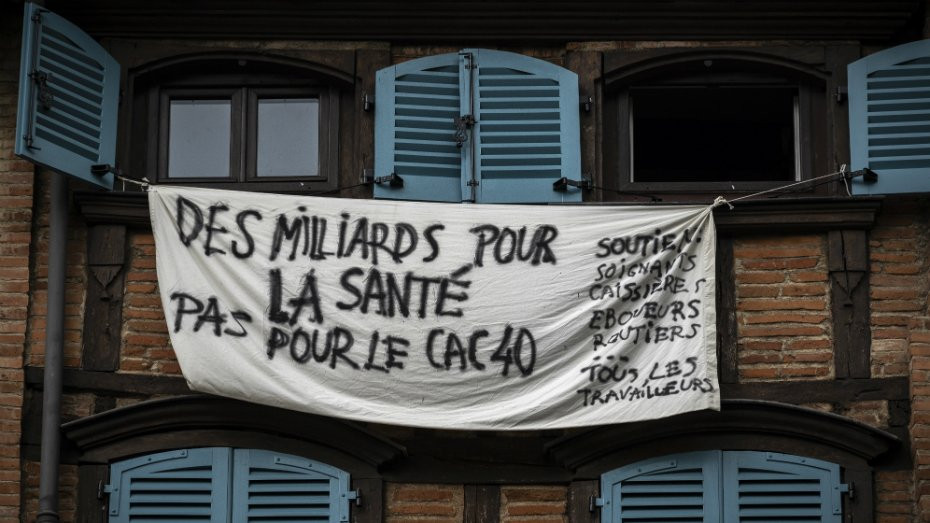 DES MILLIARDS POUR
LA SANTÉ
PAS POUR LE CAC 40
SOUTIEN:
SOIGNANTS
CAISSIÈRES
EBOUEURS
ROUTIERS
...
TOUS LES
TRAVAILLEURS